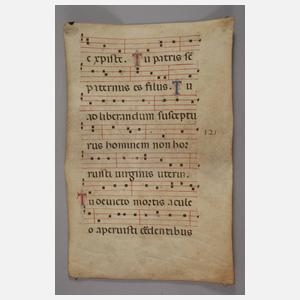 e xpiste. Tu patris sē
paternus es filius. Tu
ad liberandum susceptu
rus hominem non hor
ruisti virginis uterum.
Tu devicto mortis acule
o aperuisti credentibus